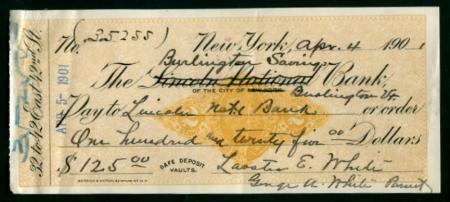 No. (35255) New York, Apr. 4 1901
Burlington Savings
The Lincoln National Bank,
OF THE CITY OF NEW YORK. Burlington Vt
Pay to Lincoln Natl Bank or order
One hundred twenty five 00 Dollars
$125.00 SAFE DEPOSIT
VAULTS.
E. White
George A. White
32 to 42 East 42nd St.
APR 5- 1901